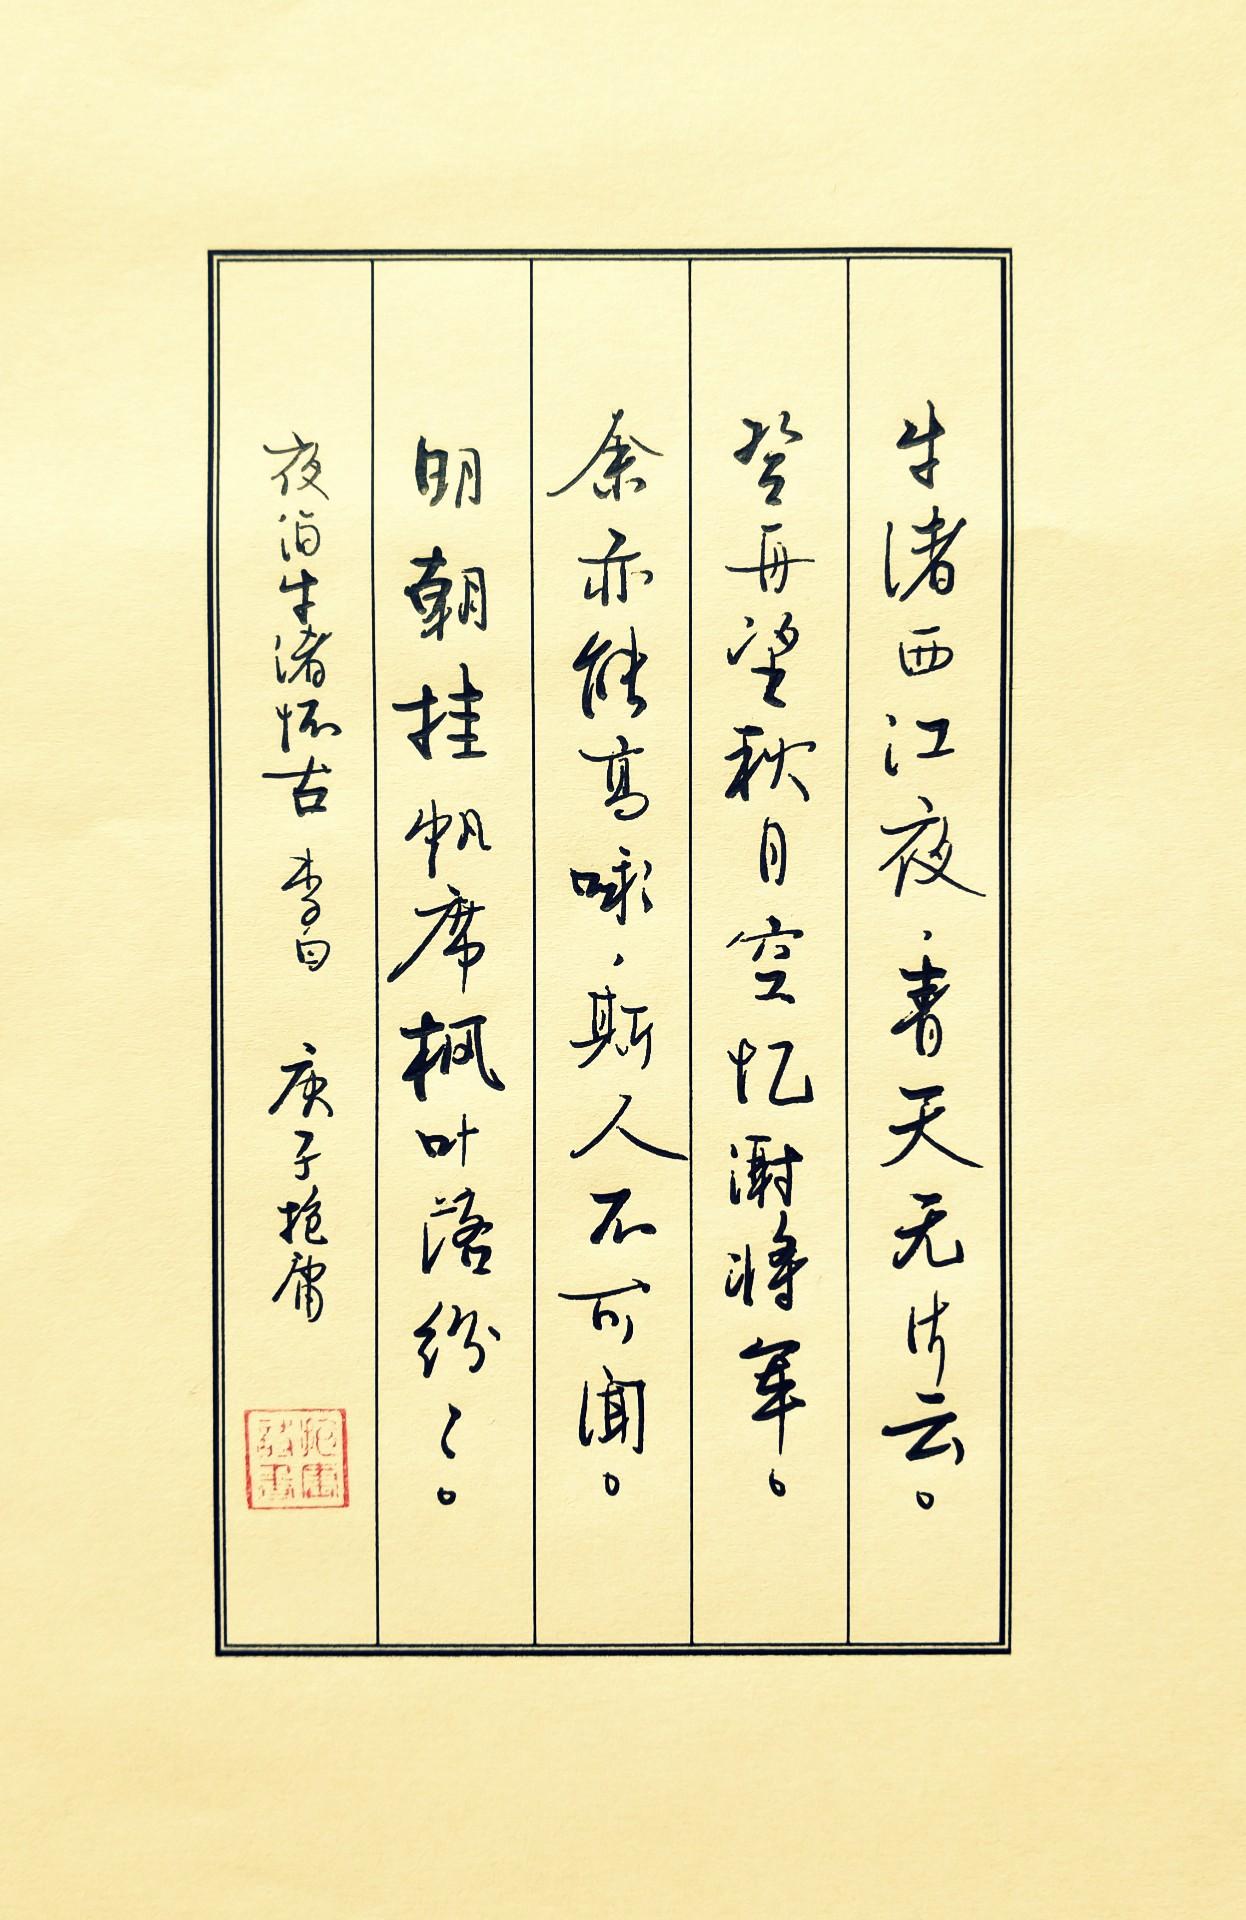 牛渚西江夜、青天无片云。
登舟望秋月空忆谢将军。
余亦能高咏、斯人不可闻。
明朝挂帆席枫叶落纷〻。
夜泊牛渚怀古 李白 庚子抱庸